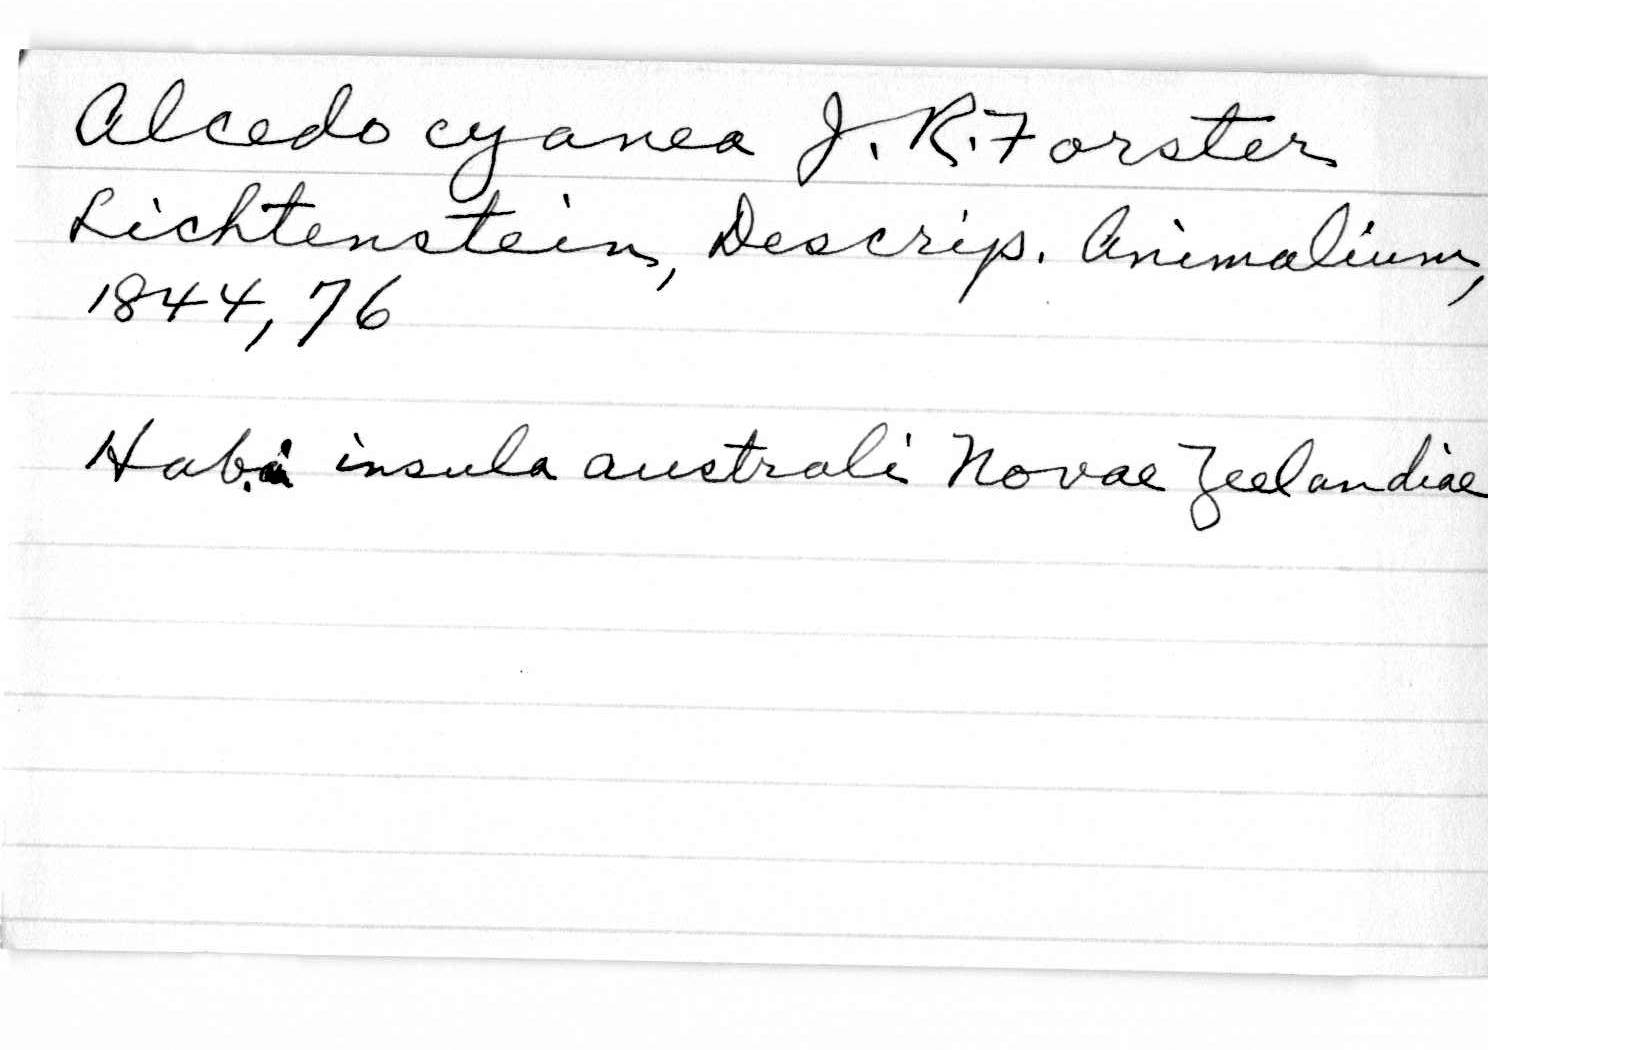 Alcedo cyanea J. R. Forster
Lichtenstein, Descrip. Animalium,
1844, 76
Hab. insula australi Novae Zeelandiae